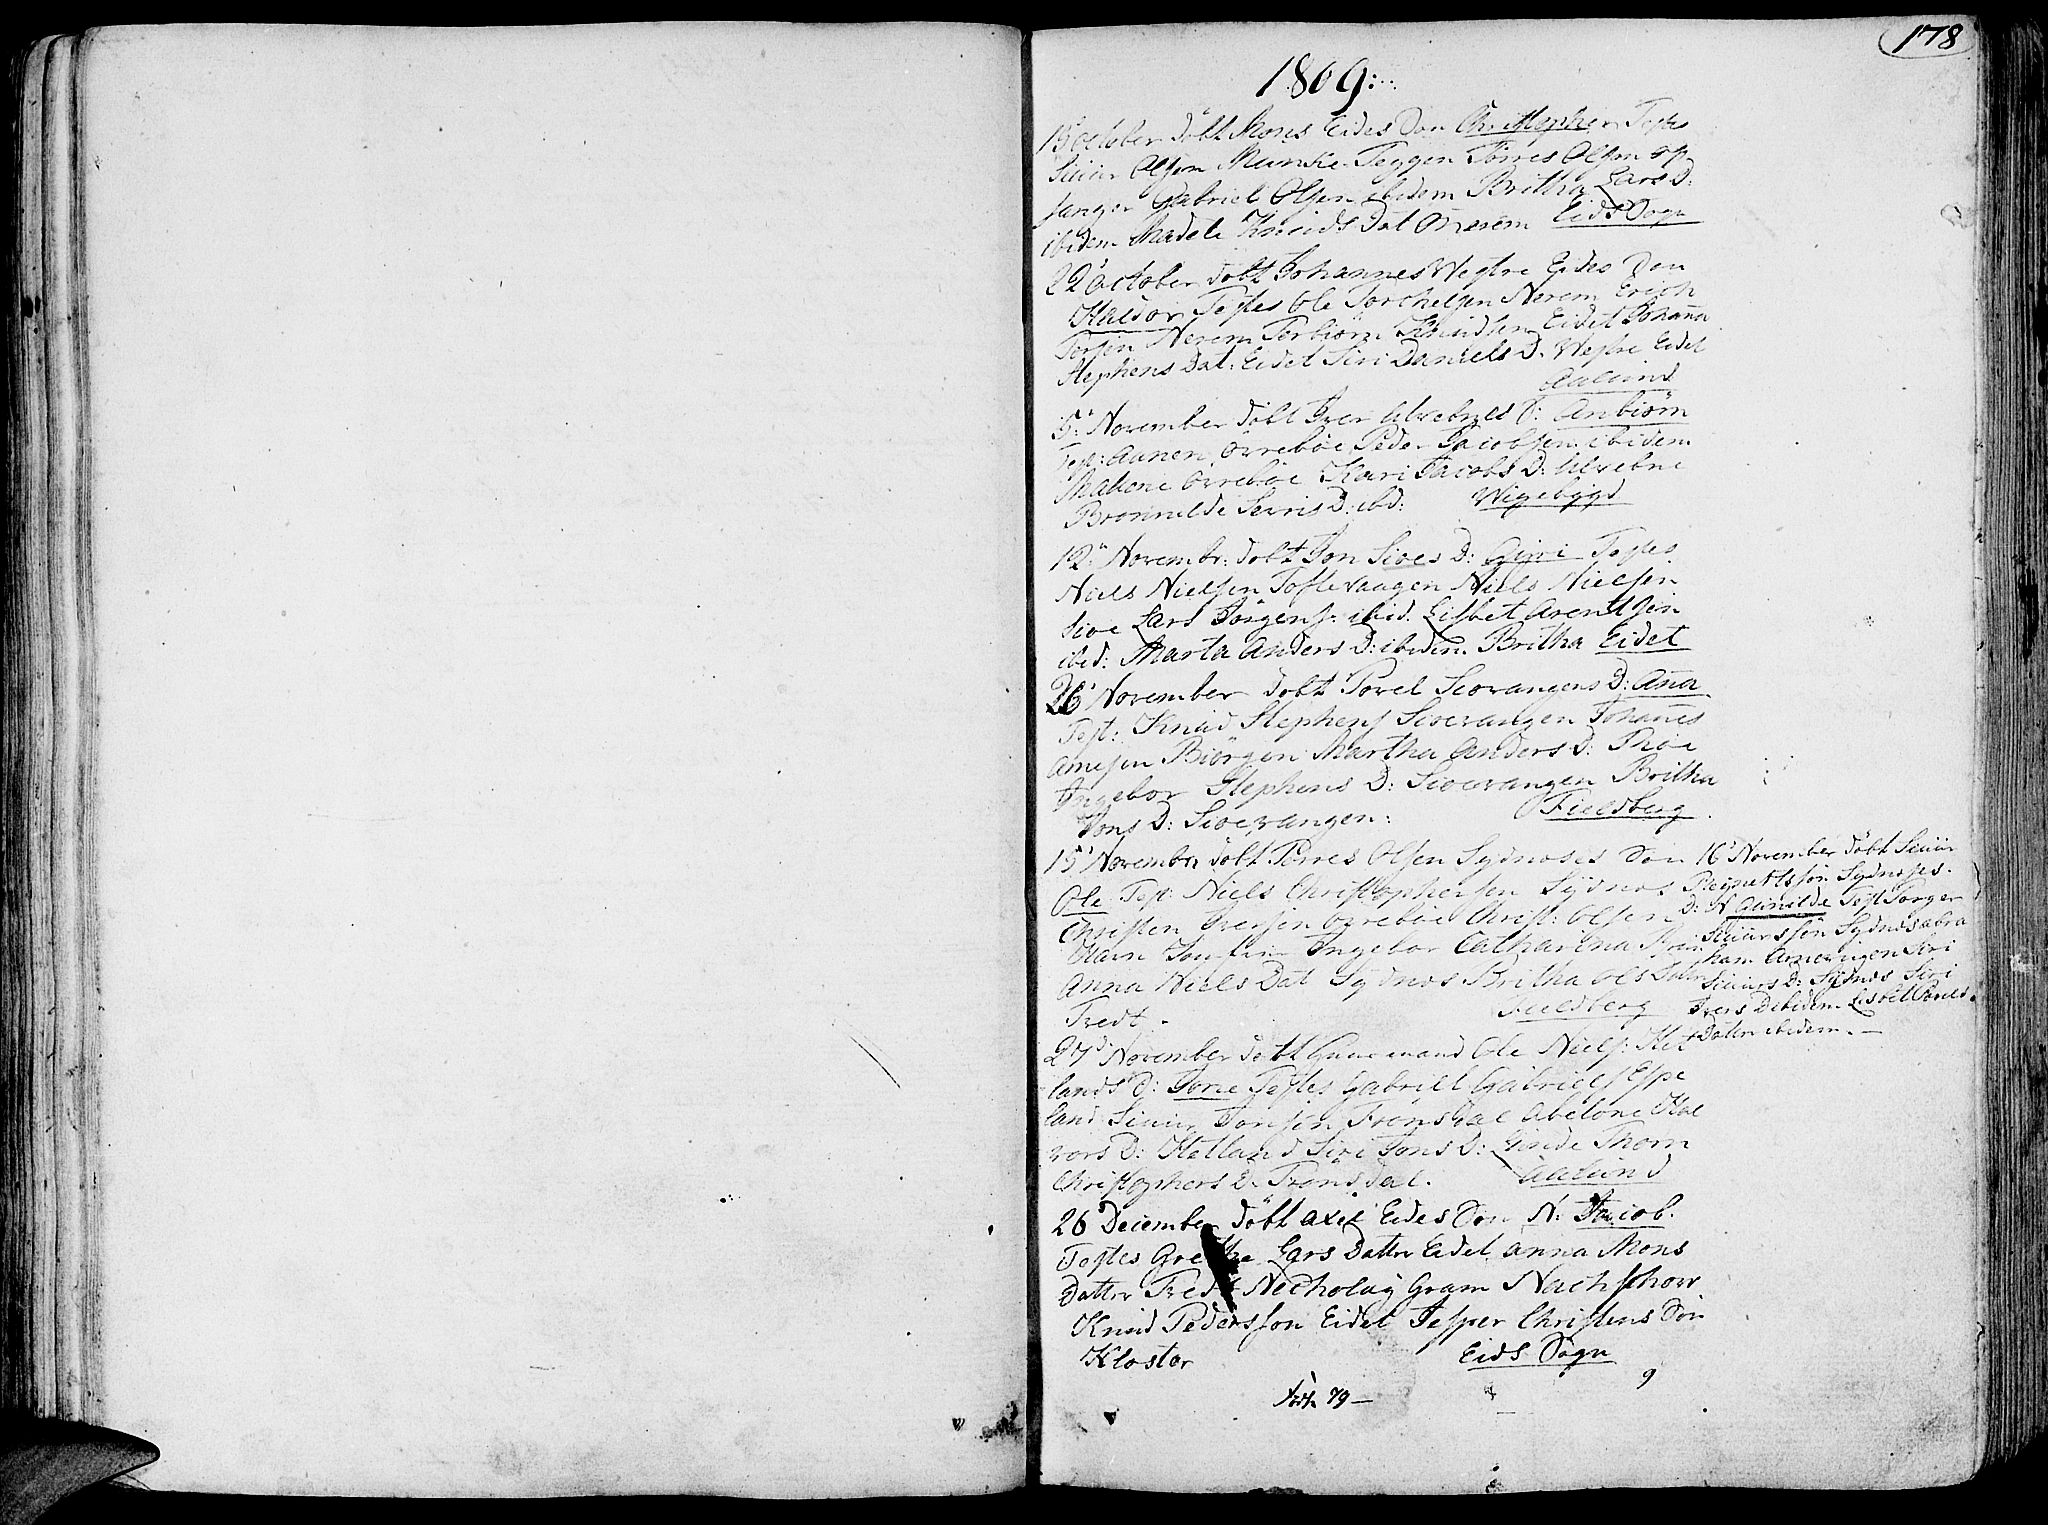 178
1809:
15 october döbt Mons Eides Søn Christopher Testes
Siuur Olsen Munke Teggen Torres Olsen op
sanger Gabriel Olsen ibidem Britha Lars D:
ibidem Madele Knuds Dat Nerem Eids Sogn
22 october döbt Johannes Westre Eides Søn
Haldor Testes Ole Torchelsen Nerem Erich
Nerem Torbiörn Knudsen Eidet Johanna
Stephens Dat: Eidet Siri Daniels D. Westre Eidet
Aalund
5: November döbt Iver Ulvebnes D: Anbiörn
Test: Aanen Örreböe Peder Jacobsen ibidem
Malene Örreböe Kari Jacobs D: Ulvebne
Bronnilde Sevris D: ibd: Wigebygd
12 Novembr: döbt Jon Sioes D: Giuri Testes
Niels Nielsen Toftevaagen Niels Nielsen
Sioe Lars Jörgens: ibid. Lisbet Arentsen
ibid: Marta Anders D: ibidem Britha Eidet
26 November döbt Povel Sioevangens D: Ana
Test: Knud Stephens Sioevangen Johanes
Arnesen Biörgen Martha Anders D: Thoe
Ingebor Stephens D: Sioevangen Britha
Jons D: Sioevangen: Fieldberg
15 Novembr döbt Torres Olsen Sydnæses Søn
Ole Test: Niels Christophersen Sydnes
Christen Iversen Örreböe Christ: Olsen
Ingebor Catharina
Anna Niels Dat Sydnæs Britha Ols Datr
Tredt - Fieldberg
16 November döbt Siuur
Sydnæses
D: N Gunilde Test Torger
Siuursön Sydnæs abra
ham Siri
Siuurs D: Sydnæs Siri
Ivers D ibidem Lisbet Povels
Datter ibidem. —
27 November döbt Ole Niels: Het
lands D: Testes Gabriel Gabriels Espe
land Siuur Jonsen Fronsdal Abelone Hal
vors D: Hetland Siri Jons D: Linde
Christophers D. Fronsdal. Aalund
26 December döbt Axel Eides Søn N: Jacob.
Testes Grethe Lars Datter Eidet Anna Mons
Datter Tredt Necholay Gram Nachskow
Knud Pedersson Eidet Jesper Christens Søn
Kloster Eids Sogn
9
79 —